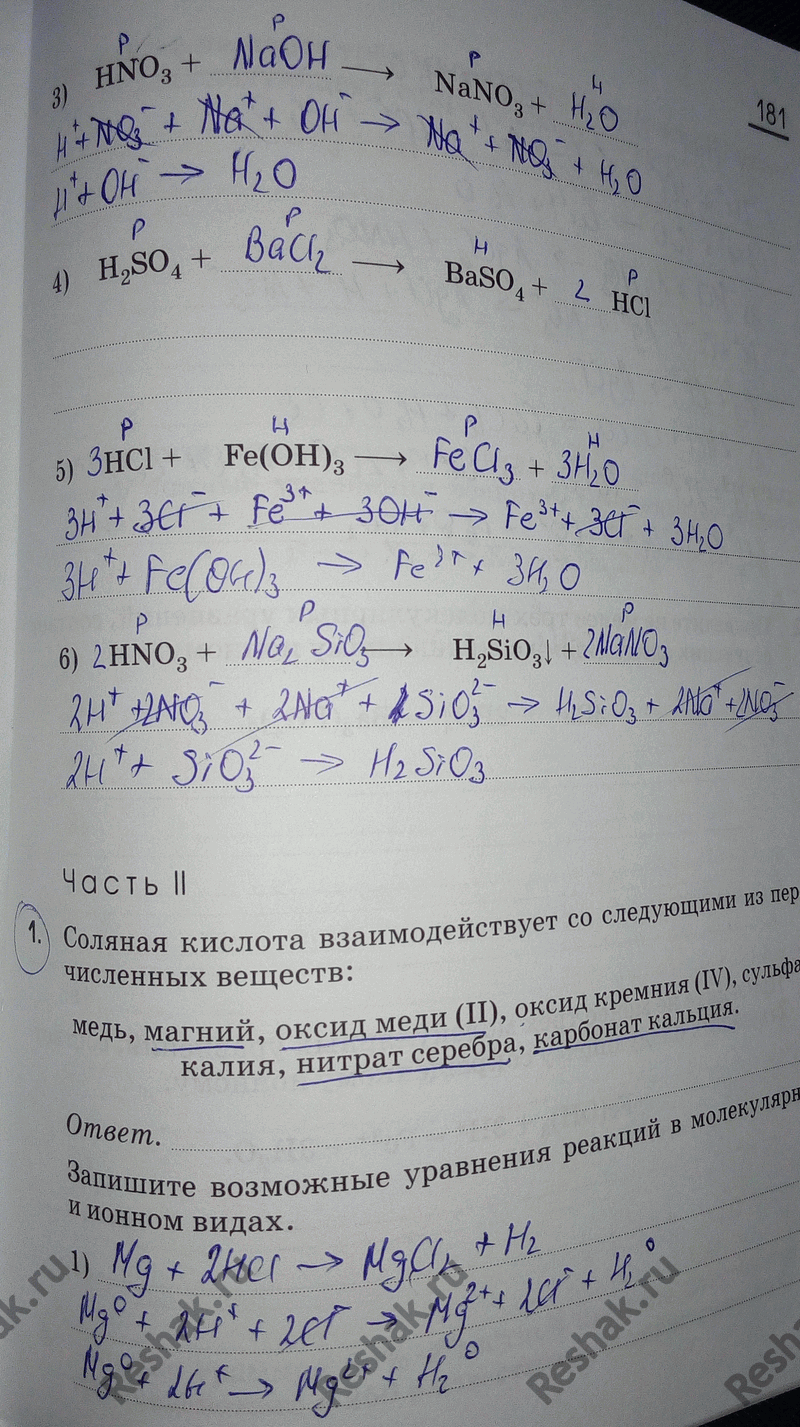 181
Р Р Р Н
3) HNO₃ + NaOH ⟶ NaNO₃ + H₂O
H⁺ + NO₃⁻ + Na⁺ + OH⁻ → Na⁺ + NO₃⁻ + H₂O
H⁺ + OH⁻ → H₂O
Р Р Н Р
4) H₂SO₄ + BaCl₂ ⟶ BaSO₄ + 2 HCl
Р Н Р Н
5) 3HCl + Fe(OH)₃ ⟶ FeCl₃ + 3H₂O
3H⁺ + 3Cl⁻ + Fe³⁺ + 3OH⁻ → Fe³⁺ + 3Cl⁻ + 3H₂O
3H⁺ + Fe(OH)₃ → Fe³⁺ + 3H₂O
Р Р Н Р
6) 2HNO₃ + Na₂SiO₃ ⟶ H₂SiO₃↓ + 2NaNO₃
2H⁺ + 2NO₃⁻ + 2Na⁺ + SiO₃²⁻ → H₂SiO₃ + 2Na⁺ + 2NO₃⁻
2H⁺ + SiO₃²⁻ → H₂SiO₃
Часть II
1. Соляная кислота взаимодействует со следующими из пер
численных веществ:
медь, магний, оксид меди (II), оксид кремния (IV), сульфа
калия, нитрат серебра, карбонат кальция.
Ответ.
Запишите возможные уравнения реакций в молекулярн
и ионном видах.
1) Mg + 2HCl → MgCl₂ + H₂
Mg⁰ + 2H⁺ + 2Cl⁻ → Mg²⁺ + 2Cl⁻ + H₂⁰
Mg⁰ + 2H⁺ → Mg²⁺ + H₂⁰
Reshak.ru Reshak.ru Reshak.ru